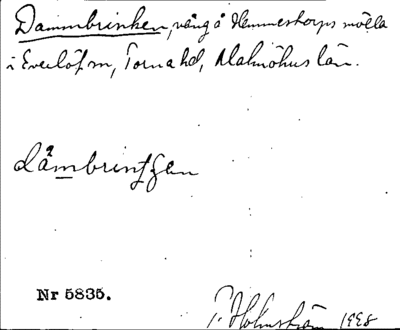 Dammbrinken, vång å Hemmestorps mölla
i Everlöf sn, Torna hd, Malmöhus län.
Dåmbrintjen
Nr 5835.
P. Holmström 1998